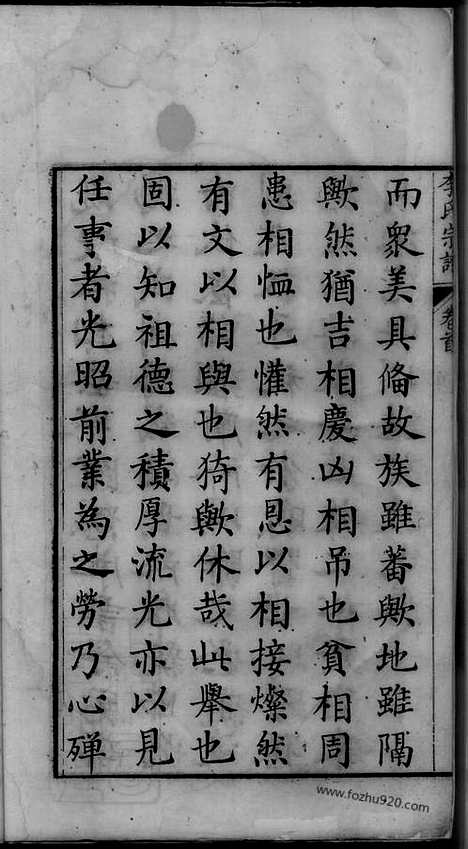 李氏宗譜
卷首
而衆美具備故族雖蕃歟地雖隔
歟然猶吉相慶凶相吊也貧相周
患相恤也懽然有恩以相接燦然
有文以相與也猗歟休哉此舉也
固以知祖德之積厚流光亦以見
任事者光昭前業為之勞乃心殫
www.fozhu920.com